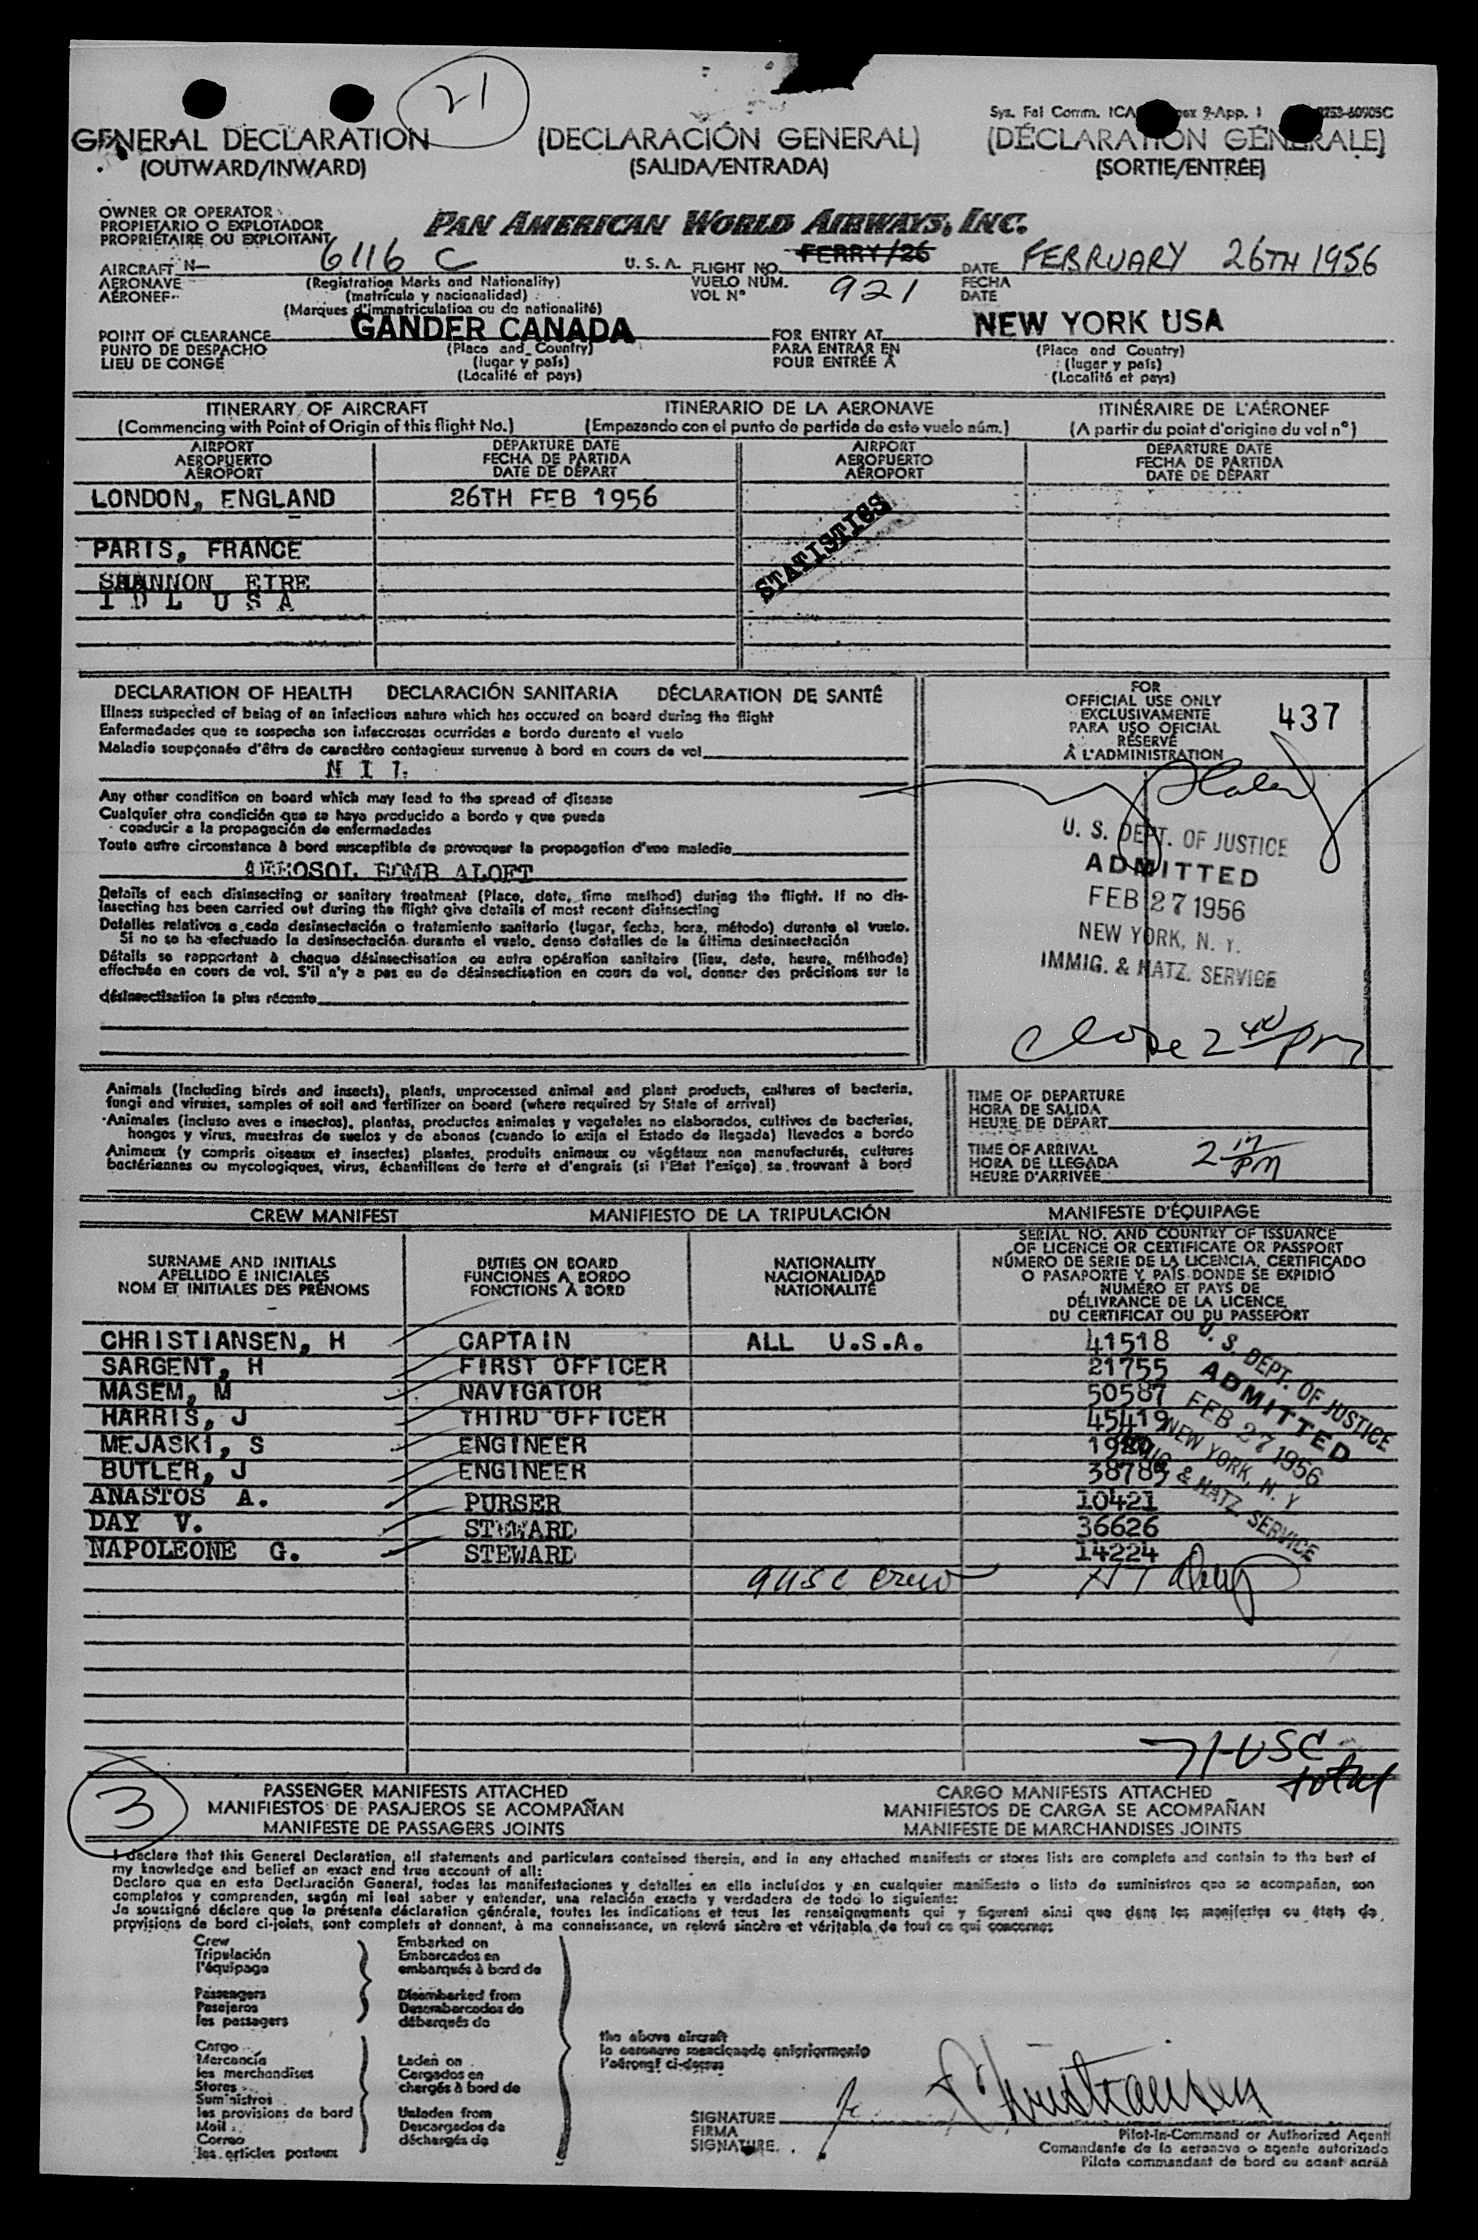 21
Sys. Fal Comm. ICA
GENERAL DECLARATION (DECLARACIÓN GENERAL) (DÉCLARATION GÉNÉRALE)
(OUTWARD/INWARD) (SALIDA/ENTRADA) (SORTIE/ENTRÉE)
OWNER OR OPERATOR
PROPIETARIO O EXPLOTADOR PAN AMERICAN WORLD AIRWAYS, INC.
PROPRIÉTAIRE OU EXPLOITANT
AIRCRAFT N— 6116 C U. S. A. FLIGHT NO. FERRY/26 DATE FEBRUARY 26TH 1956
AERONAVE (Registration Marks and Nationality) VUELO NÚM. 921 FECHA
AÉRONEF (matrícula y nacionalidad) VOL Nº DATE
(Marques d'immatriculation ou de nationalité)
POINT OF CLEARANCE GANDER CANADA FOR ENTRY AT NEW YORK USA
PUNTO DE DESPACHO (Place and Country) PARA ENTRAR EN (Place and Country)
LIEU DE CONGÉ (lugar y país) POUR ENTRÉE À (lugar y país)
(Localité et pays) (Localité et pays)
ITINERARY OF AIRCRAFT ITINERARIO DE LA AERONAVE ITINÉRAIRE DE L'AÉRONEF
(Commencing with Point of Origin of this flight No.) (Empezando con el punto de partida de este vuelo núm.) (A partir du point d'origine du vol nº)
AIRPORT DEPARTURE DATE AIRPORT DEPARTURE DATE
AEROPUERTO FECHA DE PARTIDA AEROPUERTO FECHA DE PARTIDA
AÉROPORT DATE DE DÉPART AÉROPORT DATE DE DÉPART
LONDON, ENGLAND 26TH FEB 1956
STATISTICS
PARIS, FRANCE
SHANNON EIRE
I D L U S A
DECLARATION OF HEALTH DECLARACIÓN SANITARIA DÉCLARATION DE SANTÉ
Illness suspected of being of an infectious nature which has occured on board during the flight
Enfermedades que se sospecha son infecciosas ocurridas a bordo durante el vuelo
Maladie soupçonnée d'être de caractère contagieux survenue à bord en cours de vol
N I L
Any other condition on board which may lead to the spread of disease
Cualquier otra condición que se haya producido a bordo y que pueda
conducir a la propagación de enfermedades
Toute autre circonstance à bord susceptible de provoquer la propagation d'une maladie
AEROSOL BOMB ALOFT
Details of each disinsecting or sanitary treatment (Place, date, time method) during the flight. If no dis-
insecting has been carried out during the flight give details of most recent disinsecting
Detalles relativos a cada desinsectación o tratamiento sanitario (lugar, fecha, hora, método) durante el vuelo.
Si no se ha efectuado la desinsectación durante el vuelo, dense detalles de la última desinsectación
Détails se rapportant à chaque désinsectisation ou autre opération sanitaire (lieu, date, heure, méthode)
effectuée en cours de vol. S'il n'y a pas eu de désinsectisation en cours de vol, donner des précisions sur la
désinsectisation la plus récente
FOR
OFFICIAL USE ONLY
EXCLUSIVAMENTE
PARA USO OFICIAL
RÉSERVÉ
À L'ADMINISTRATION
437
U. S. DEPT. OF JUSTICE
ADMITTED
FEB 27 1956
NEW YORK, N. Y.
IMMIG. & NATZ. SERVICE
Close 2 40 pm
Animals (including birds and insects), plants, unprocessed animal and plant products, cultures of bacteria,
fungi and viruses, samples of soil and fertilizer on board (where required by State of arrival)
Animales (incluso aves e insectos), plantas, productos animales y vegetales no elaborados, cultivos de bacterias,
hongos y virus, muestras de suelos y de abonos (cuando lo exija el Estado de llegada) llevados a bordo
Animaux (y compris oiseaux et insectes) plantes, produits animaux ou végétaux non manufacturés, cultures
bactériennes ou mycologiques, virus, échantillons de terre et d'engrais (si l'Etat l'exige) se trouvant à bord
TIME OF DEPARTURE
HORA DE SALIDA
HEURE DE DÉPART
TIME OF ARRIVAL
HORA DE LLEGADA 2 17 PM
HEURE D'ARRIVÉE
CREW MANIFEST MANIFIESTO DE LA TRIPULACIÓN MANIFESTE D'ÉQUIPAGE
SURNAME AND INITIALS
APELLIDO E INICIALES
NOM ET INITIALES DES PRÉNOMS
DUTIES ON BOARD
FUNCIONES A BORDO
FONCTIONS À BORD
NATIONALITY
NACIONALIDAD
NATIONALITÉ
SERIAL NO. AND COUNTRY OF ISSUANCE
OF LICENCE OR CERTIFICATE OR PASSPORT
NÚMERO DE SERIE DE LA LICENCIA, CERTIFICADO
O PASAPORTE Y PAÍS DONDE SE EXPIDIÓ
NUMÉRO ET PAYS DE
DÉLIVRANCE DE LA LICENCE,
DU CERTIFICAT OU DU PASSEPORT
CHRISTIANSEN, H CAPTAIN ALL U.S.A. 41518
SARGENT, H FIRST OFFICER 21755
MASEM, M NAVIGATOR 50587
HARRIS, J THIRD OFFICER 45419
MEJASKI, S ENGINEER
BUTLER, J ENGINEER 38785
ANASTOS A. PURSER 10421
DAY V. STEWARD 36626
NAPOLEONE G. STEWARD 14224
U. S. DEPT. OF JUSTICE
ADMITTED
FEB 27 1956
NEW YORK, N. Y
IMMIG & NATZ. SERVICE
9 USC crew
71-USC
total
3
PASSENGER MANIFESTS ATTACHED CARGO MANIFESTS ATTACHED
MANIFIESTOS DE PASAJEROS SE ACOMPAÑAN MANIFIESTOS DE CARGA SE ACOMPAÑAN
MANIFESTE DE PASSAGERS JOINTS MANIFESTE DE MARCHANDISES JOINTS
I declare that this General Declaration, all statements and particulars contained therein, and in any attached manifests or stores lists are complete and contain to the best of
my knowledge and belief an exact and true account of all:
Declaro que en esta Declaración General, todas las manifestaciones y detalles en ella incluídos y en cualquier manifiesto o lista de suministros que se acompañan, son
completos y comprenden, según mi leal saber y entender, una relación exacta y verdadera de todo lo siguiente:
Je soussigné déclare que la présente déclaration générale, toutes les indications et tous les renseignements qui y figurent ainsi que dans les manifestes ou états de
provisions de bord ci-joints, sont complets et donnent, à ma connaissance, un relevé sincère et véritable de tout ce qui concerne:
Crew Embarked on
Tripulación Embarcados en
l'équipage embarqués à bord de
Passengers Disembarked from
Pasajeros Desembarcados de
les passagers débarqués de
the above aircraft
la aeronave mencionada anteriormente
l'aéronef ci-dessus
Cargo
Mercancía Laden on
les merchandises Cargados en
Stores chargés à bord de
Suministros
les provisions de bord Unladen from
Mail Descargados de
Correo déchargés de
les articles postaux
SIGNATURE Christiansen
FIRMA
SIGNATURE
Pilot-in-Command or Authorized Agent
Comandante de la aeronave o agente autorizado
Pilote commandant de bord ou agent agréé